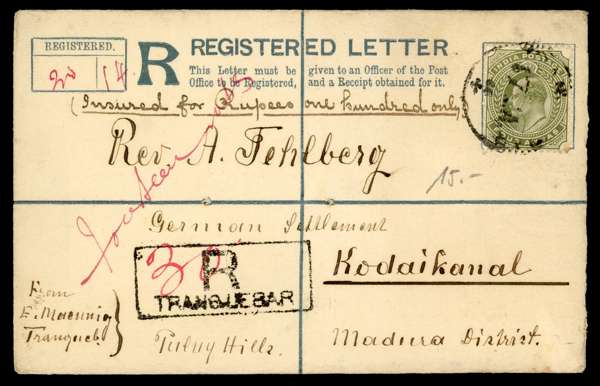 REGISTERED.
30 14
R REGISTERED LETTER
This Letter must be given to an Officer of the Post
Office to be Registered, and a Receipt obtained for it.
INDIA POSTAGE
(Insured for Rupees one hundred only)
Rev. A. Fehlberg
15.-
German Settlement
30
R
TRANQUEBAR
Kodaikanal
From
E. Maennig
Tranqueb.
Pulny Hills.
Madura District.